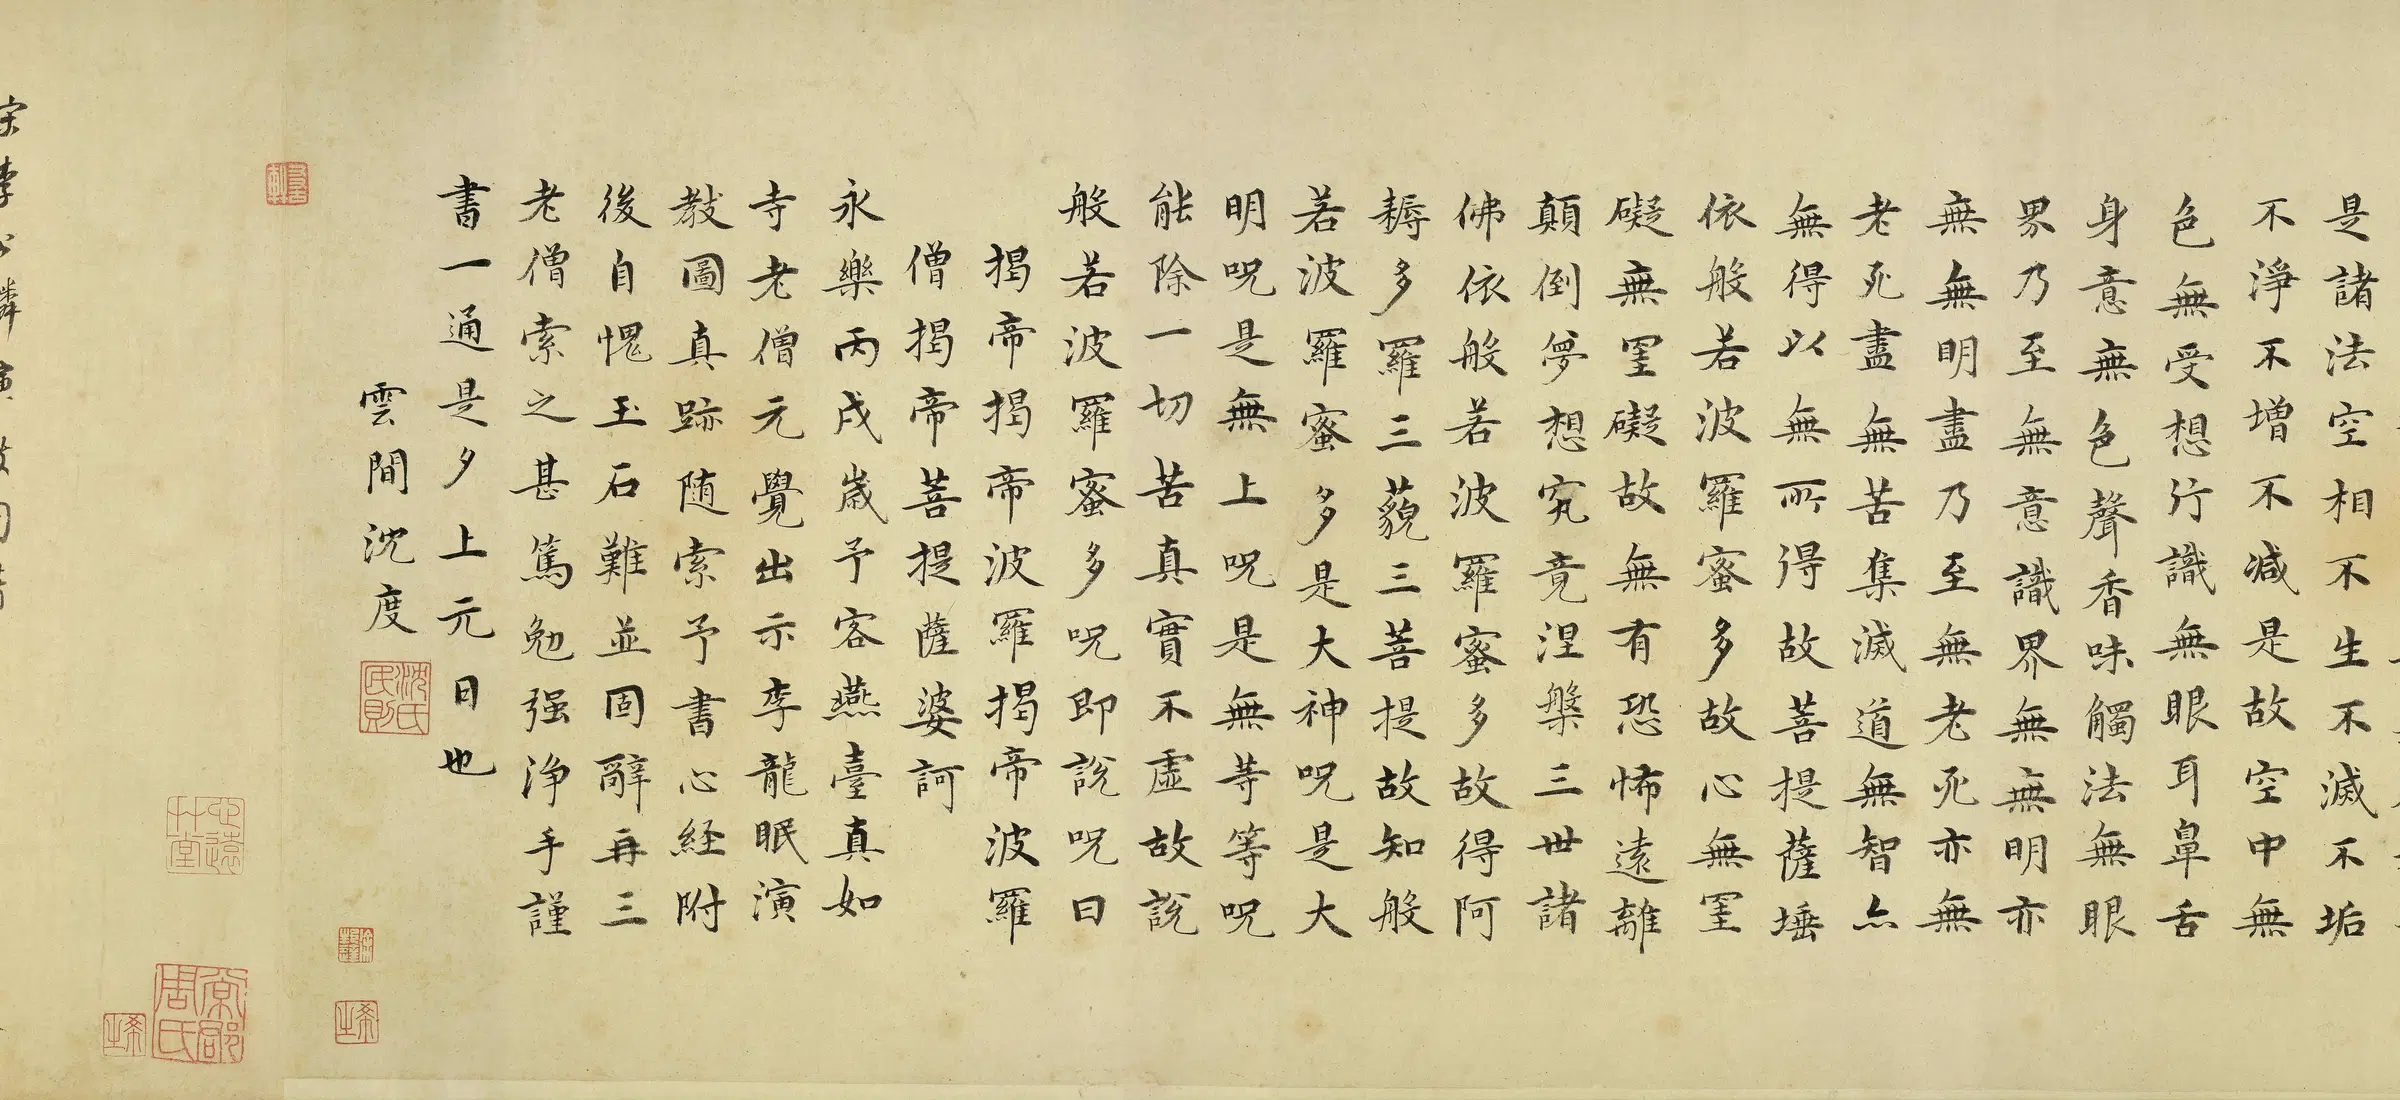 是諸法空相不生不滅不垢
不淨不增不減是故空中無
色無受想行識無眼耳鼻舌
身意無色聲香味觸法無眼
界乃至無意識界無無明亦
無無明盡乃至無老死亦無
老死盡無苦集滅道無智亦
無得以無所得故菩提薩埵
依般若波羅蜜多故心無罣
礙無罣礙故無有恐怖遠離
顛倒夢想究竟涅槃三世諸
佛依般若波羅蜜多故得阿
耨多羅三藐三菩提故知般
若波羅蜜多是大神呪是大
明呪是無上呪是無等等呪
能除一切苦真實不虛故說
般若波羅蜜多呪即說呪曰
揭帝揭帝波羅揭帝波羅
僧揭帝菩提薩婆訶
永樂丙戌歲予客燕臺真如
寺老僧元覺出示李龍眠演
教圖真跡随索予書心経附
後自愧玉石難並固辭再三
老僧索之甚篤勉强淨手謹
書一通是夕上元日也
雲間沈度
沈氏民則